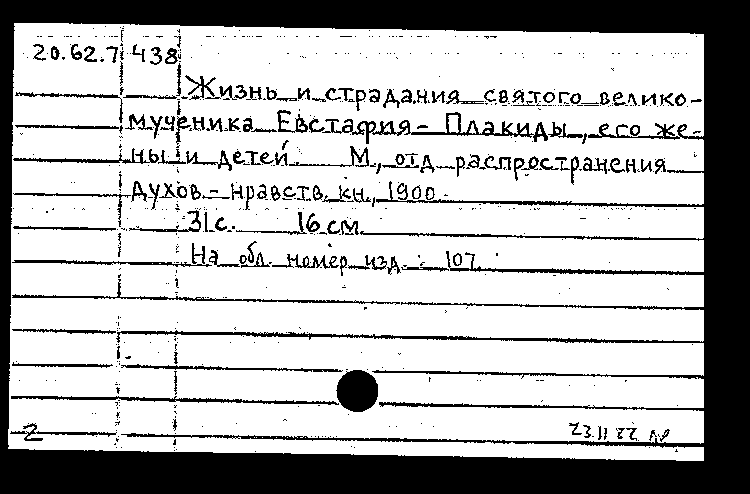 20.62.7 438
Жизнь и страдания святого велико-
мученика Евстафия - Плакиды, его же-
ны и детей. М., отд. распространения
духов.- нравств. кн., 1900.
31 с. 16 см.
На обл. номер изд.: 107.
2